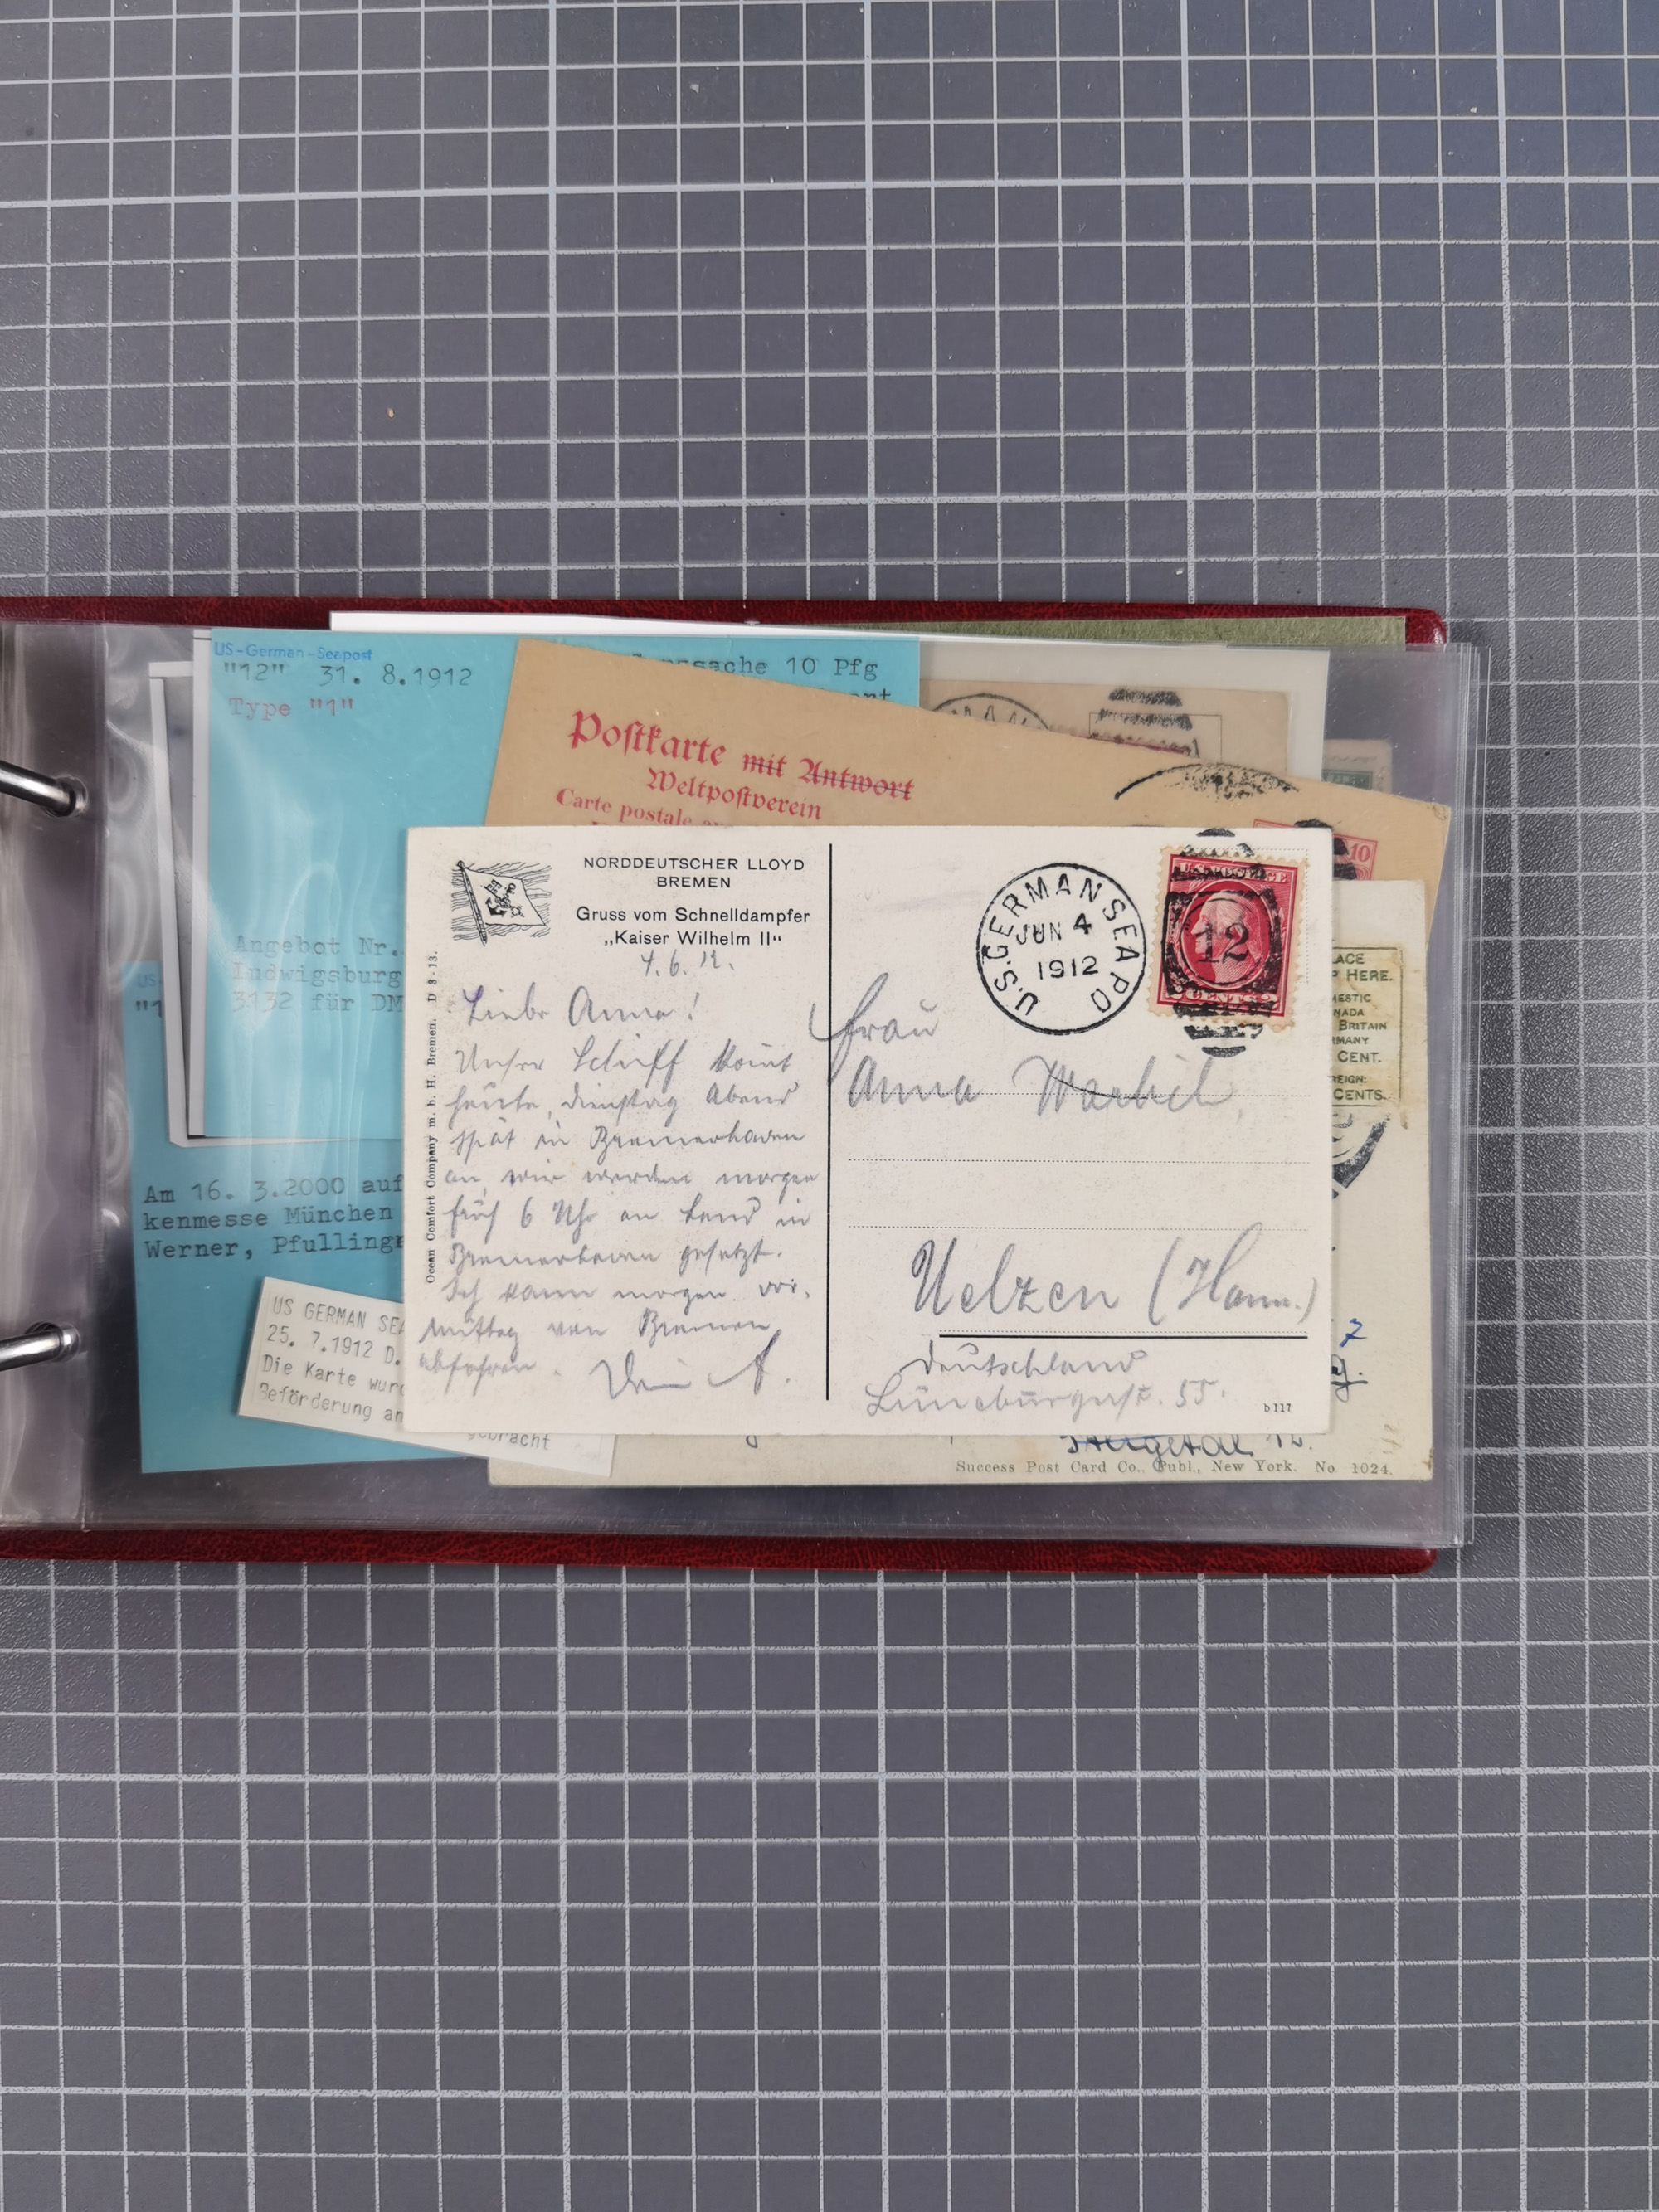 US-German-Seepost
"12" 31. 8.1912
Type "1"
ssache 10 Pfg
Postkarte mit Antwort
Weltpostverein
Carte postale
10
Angebot Nr.
Ludwigsburg
3132 für DM
"1
Am 16. 3.2000 auf
kenmesse München
Werner, Pfullinge
US GERMAN SEA
25. 7.1912 D.
Die Karte wurd
Beförderung an
gebracht
NORDDEUTSCHER LLOYD
BREMEN
Gruss vom Schnelldampfer
„Kaiser Wilhelm II“
4.6.12.
Liebe Anna!
Unser Schiff kommt
heute, Dienstag Abend
spät in Bremerhaven
an, wir werden morgen
früh 6 Uhr an Land in
Bremerhaven gesetzt.
Ich kann morgen vor-
mittag von Bremen
abfahren. Dein A.
Ocean Comfort Company m. b. H. Bremen. D 3-13.
U.S. GERMAN SEA PO
JUN 4
1912
12
Frau
Anna
Uelzen (Hann.)
Deutschland
Lüneburgerst. 55.
b 117
LACE
HERE.
MESTIC
NADA
BRITAIN
RMANY
CENT.
REIGN:
CENTS.
7
12.
Success Post Card Co., Publ., New York. No. 1024.